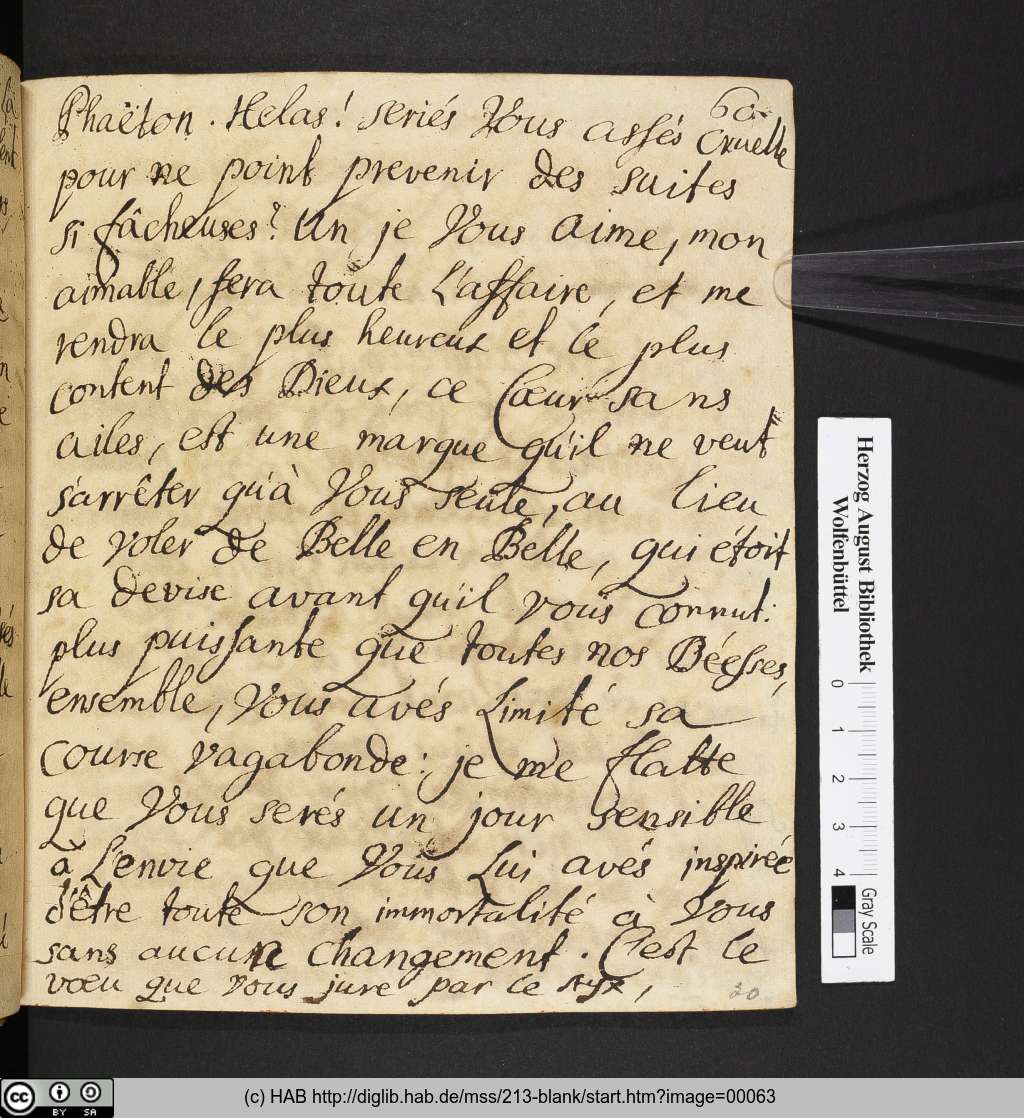 60.
Phaëton. Helas! seriés Vous assés Cruelle
pour ne point prevenir des suites
si fâcheuses? Un je Vous aime, mon
aimable, sera toute L'affaire, et me
rendra le plus heureux et le plus
content des Dieux, ce Cœur sans
ailes, est une marque qu'il ne veut
s'arrêter qu'à Vous seule, au lieu
de voler de Belle en Belle, qui étoit
sa devise avant qu'il vous connut.
plus puissante que toutes nos Déesses,
ensemble, Vous avés Limité sa
course vagabonde: je me flatte
que Vous serés un jour sensible
à L'envie que Vous Lui avés inspirée
d'être toute son immortalité à Vous
sans aucun changement. C'est le
vœu que vous jure par le styx,
20
Herzog August Bibliothek
Wolfenbüttel
0 1 2 3 4
Gray Scale
cc BY SA
(c) HAB http://diglib.hab.de/mss/213-blank/start.htm?image=00063